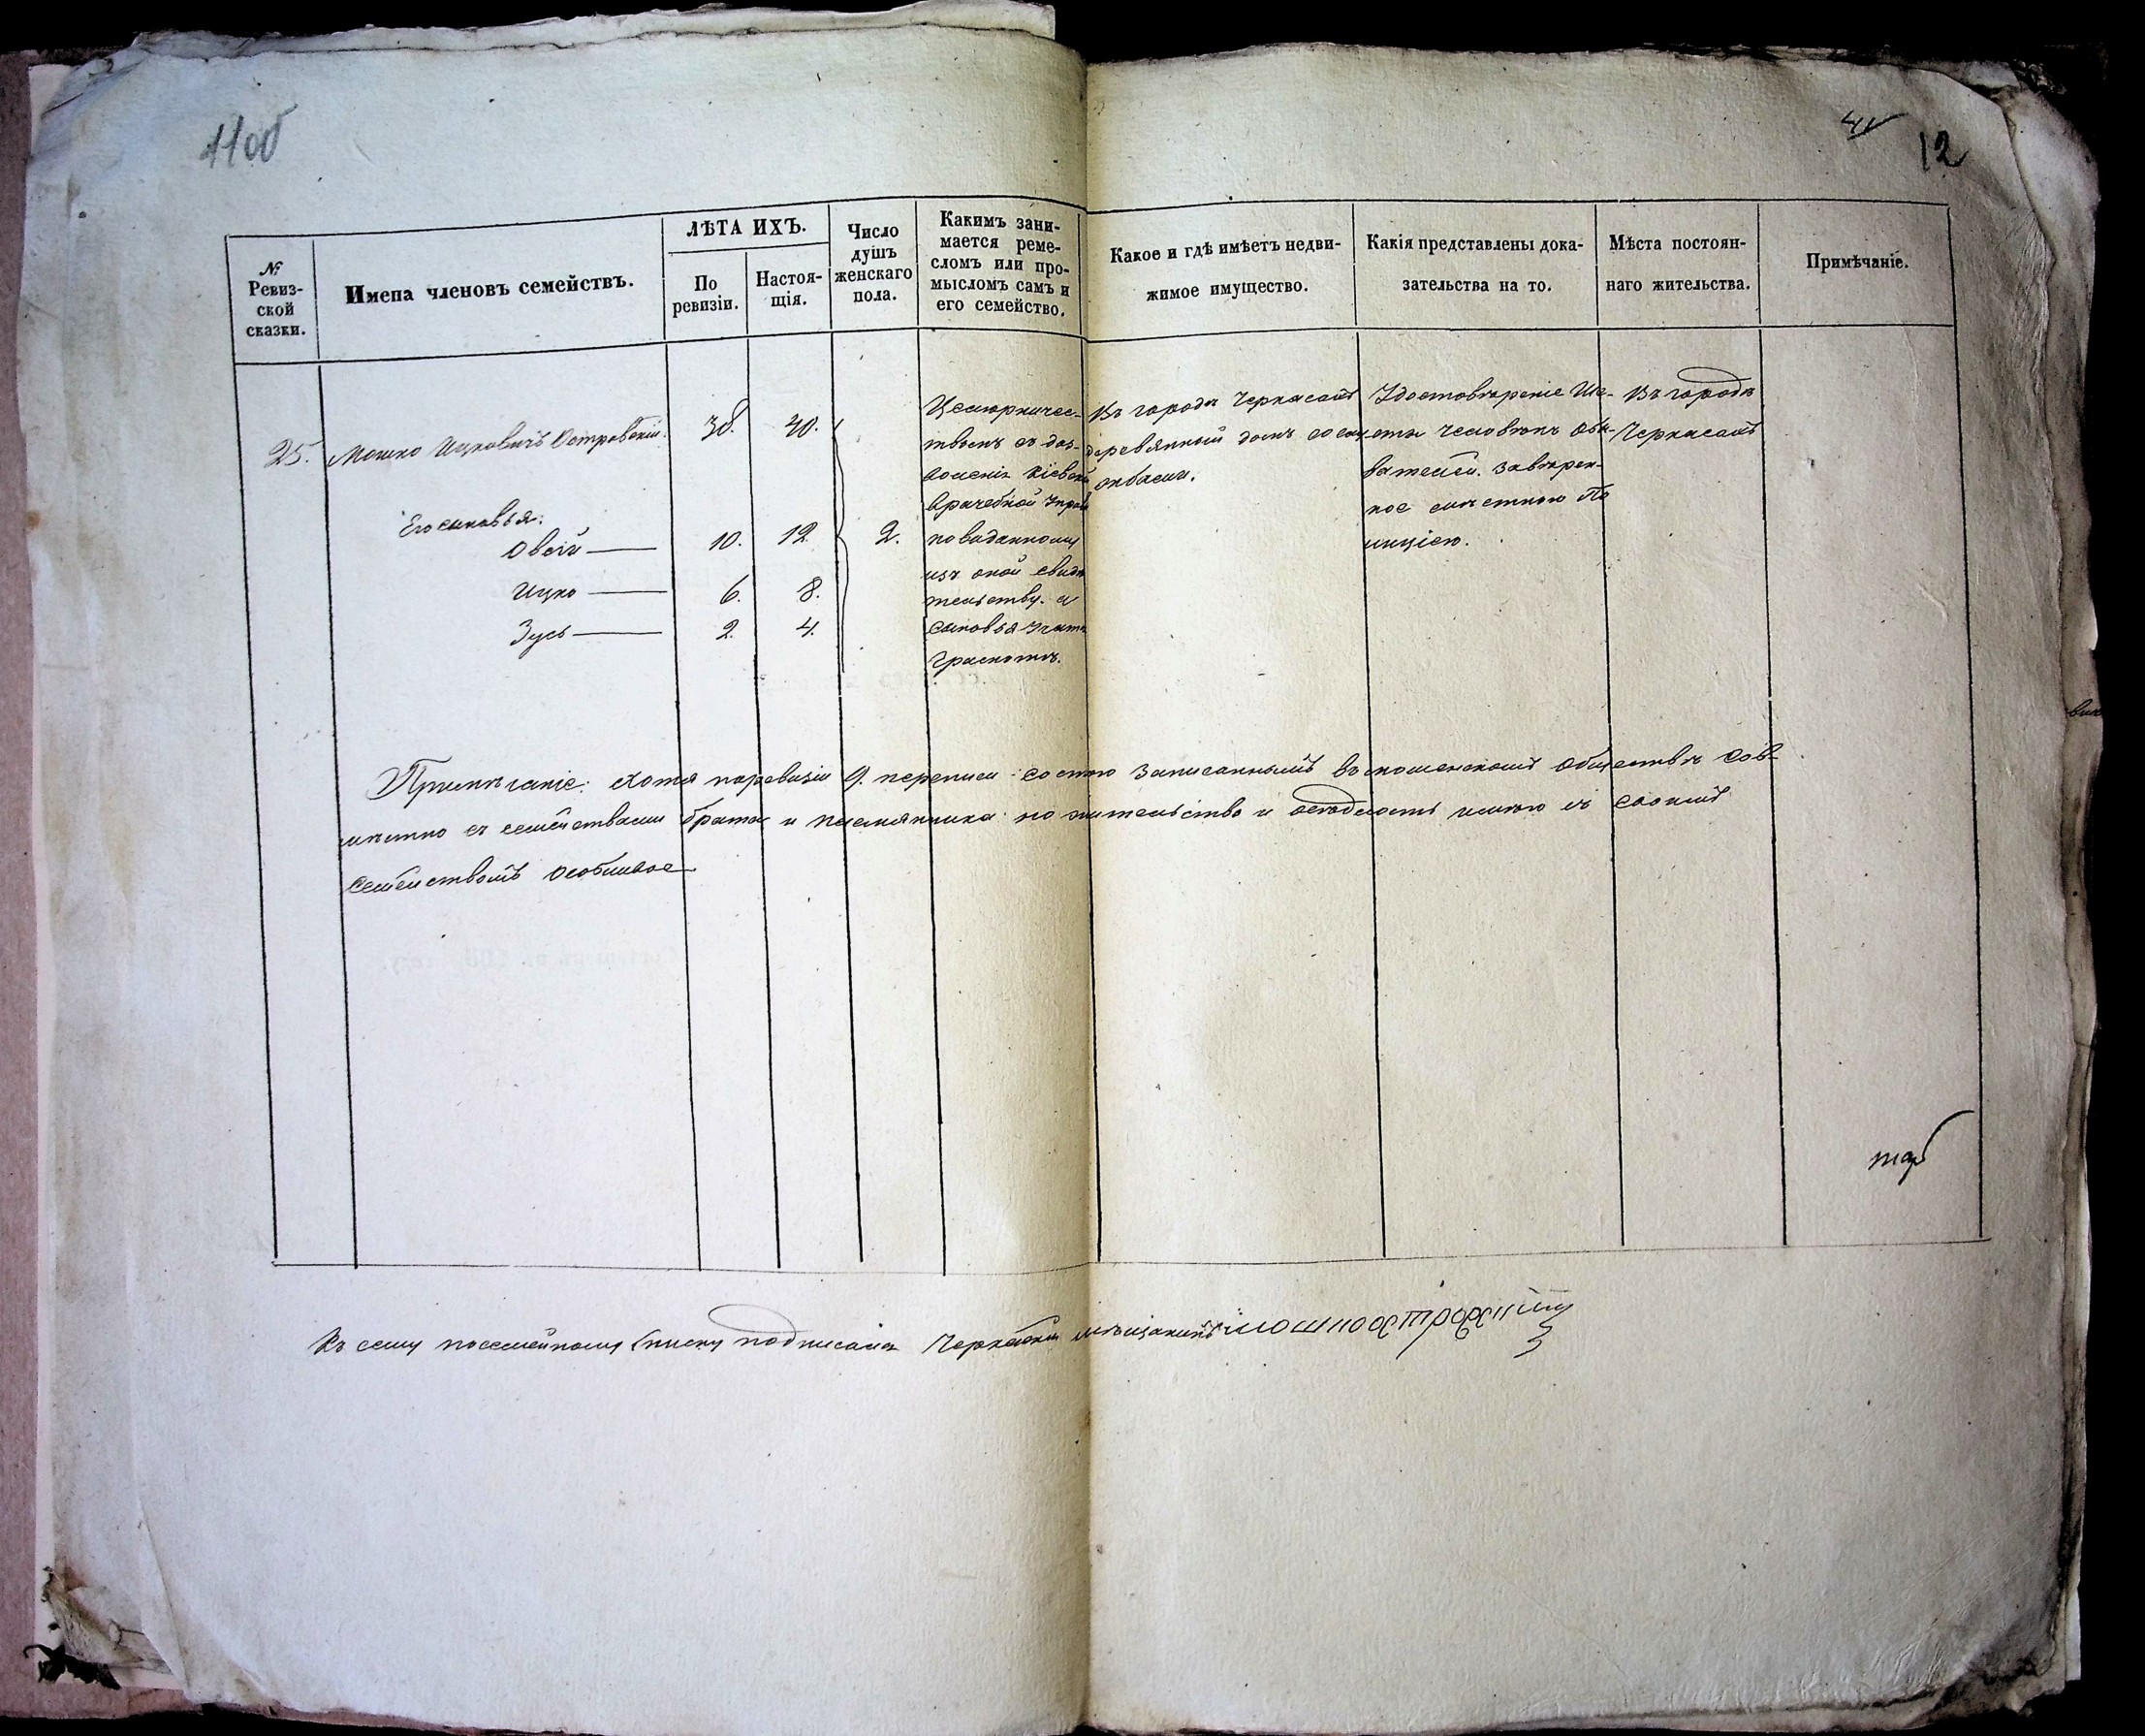 11об
12
№ Ревиз-
ской
сказки.
Имена членовъ семействъ.
ЛѢТА ИХЪ.
По
ревизіи.
Настоя-
щія.
Число
душъ
женскаго
пола.
Какимъ зани-
мается реме-
сломъ или про-
мысломъ самъ и
его семейство.
Какое и гдѣ имѣетъ недви-
жимое имущество.
Какія представлены дока-
зательства на то.
Мѣста постоян-
наго жительства.
Примѣчаніе.
25.
Мошко Ицковичъ Островскій.
38.
40.
Его сыновья:
Овсій
10.
12.
Ицко
6.
8.
Зусь
2.
4.
2.
Целюрничес-
твомъ съ доз-
воленія Кіевской
врачебной Управ
по выданному
изъ оной свидѣ
тельству. а
сыновья учатъ
грамотѣ.
Въ городѣ Черкасахъ
деревянный домъ со
Удостовѣреніе Ше-
сти человѣкъ обы-
вателей. завѣрен-
ное мѣстною По
лиціею.
Въ городѣ
Черкасахъ
Примѣчаніе: Хотя по ревизіи 9. переписи состою записаннымъ въ мошенскомъ обществѣ сов-
мѣстно съ семействами брата и племянника но жительство и осѣдлость имѣю съ своимъ
семействомъ особливое
Къ сему посемейному списку подписался Черкаскій мѣщанинъ мошко островский